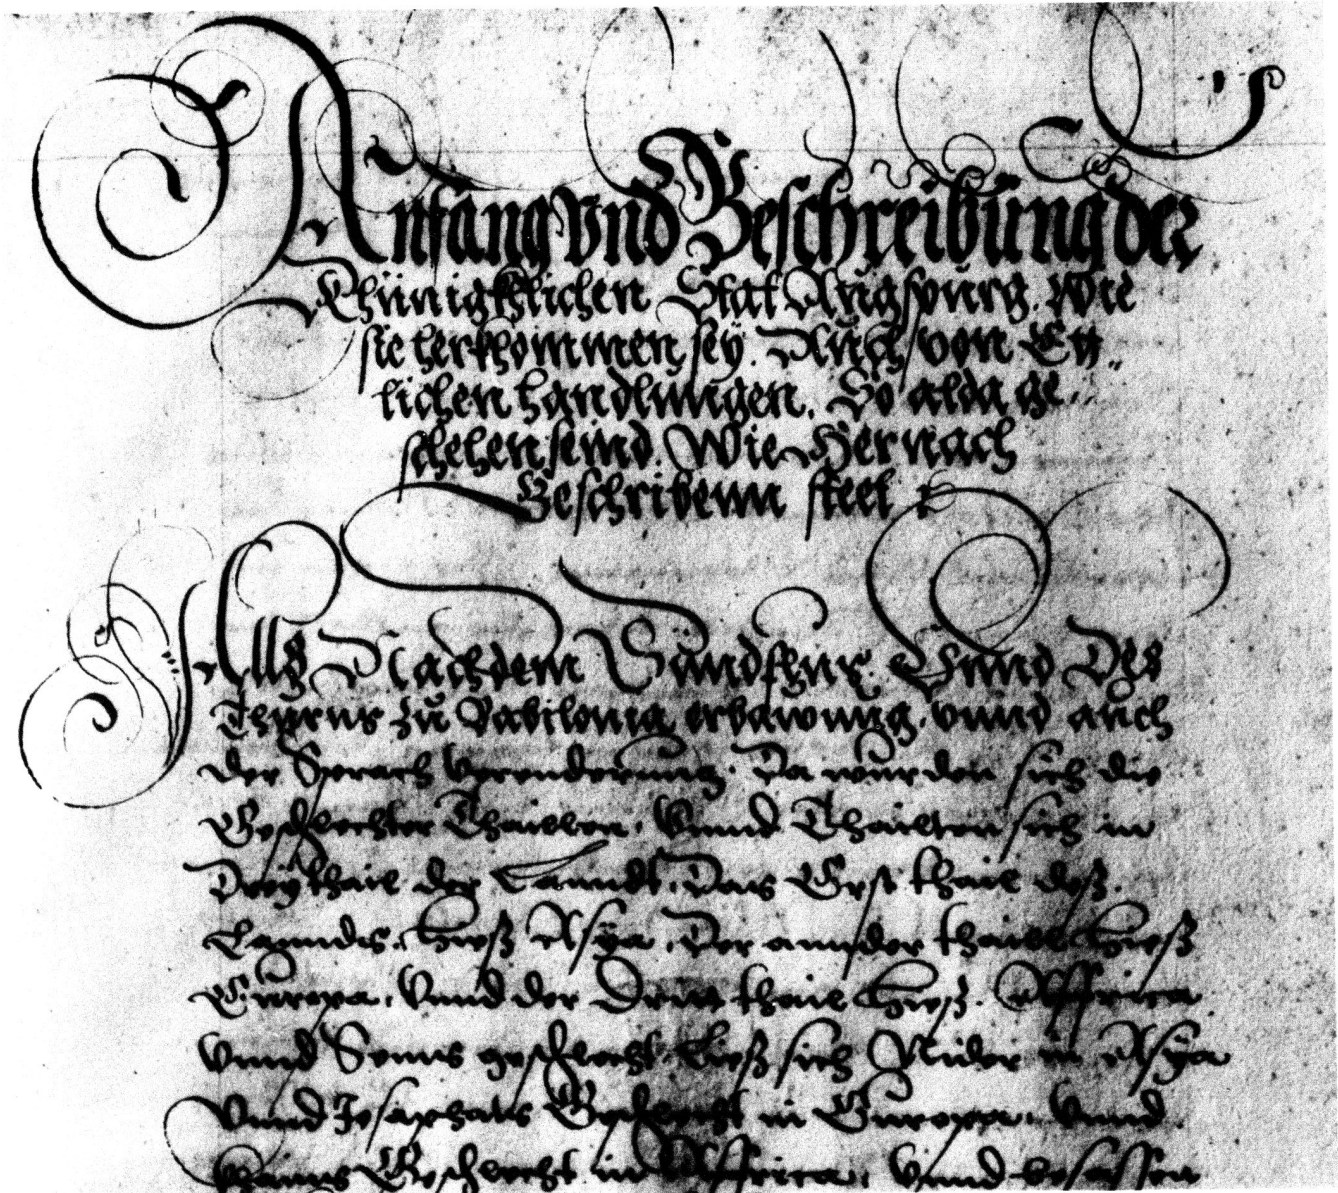 Anfang Vnd Beschreibung der
Khünigkhlichen Stat Augspurg. Wie
sie herkhommen seÿ. Auch von Ett„
lichen handlungen. So alda ge„
schehen seind. Wie Hernach
Beschribenn steet
Als Nachdem Sündfluß. Vnnd Des
Thurns zu Babilonia erbawung, vnnd auch
der Sprach Verenderung. Da wurden sich die
Geschlechter Thaillen. Vnnd Thailten sich in
Dreÿ thail der Lanndt. Das Erst thail deß.
Lanndts. hieß Asÿa. Der annder thaill hieß
Europa. Vnnd der Drit thail hieß. Affrica
Vnnd Sems geschlecht. Ließ sich Nider in Asÿa
Vnnd Josaphats Geschlecht in Europa. Vnnd
Chams Geschlecht in Affrica. Vnnd besassen